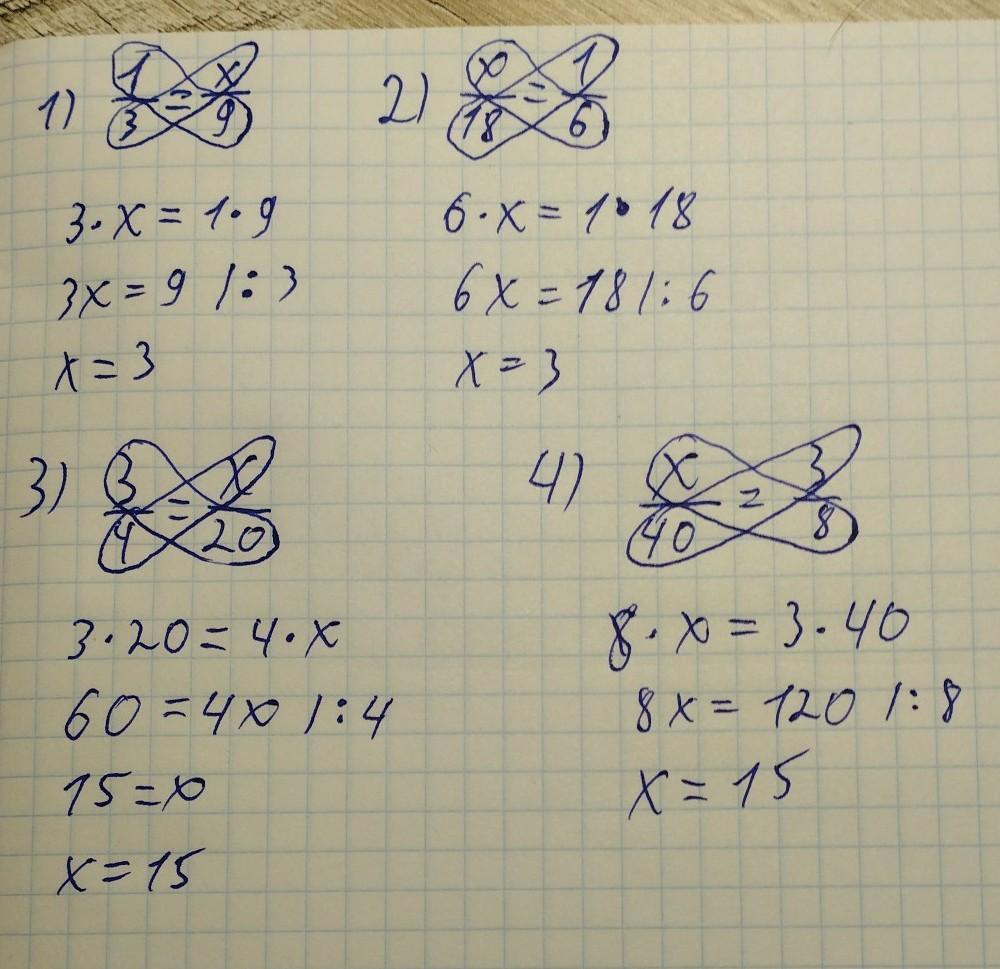 1) 1/3 = x/9
3·x = 1·9
3x = 9 /:3
x = 3
2) x/18 = 1/6
6·x = 1·18
6x = 18 /:6
x = 3
3) 3/4 = x/20
3·20 = 4·x
60 = 4x /:4
15 = x
x = 15
4) x/40 = 3/8
8·x = 3·40
8x = 120 /:8
x = 15